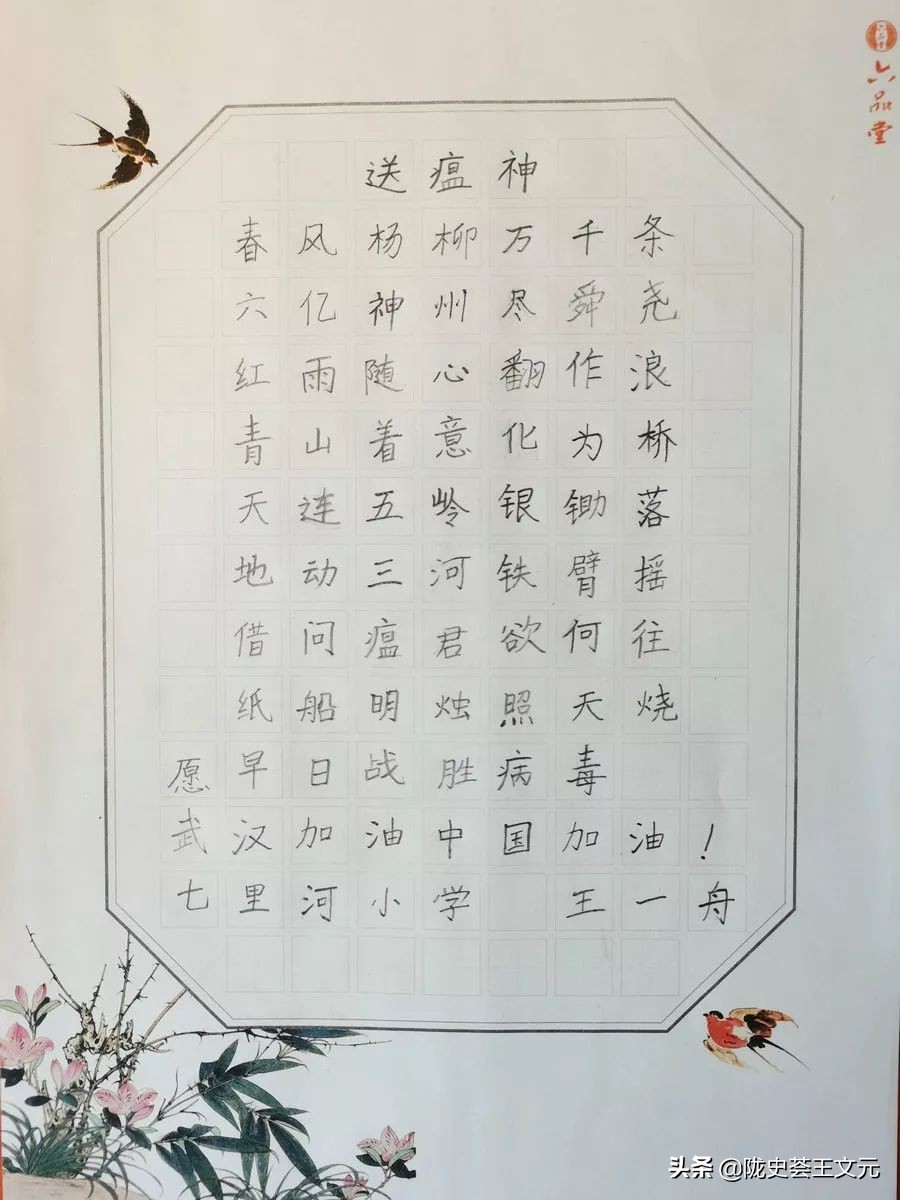 六品堂
送瘟神
春风杨柳万千条
六亿神州尽舜尧
红雨随心翻作浪
青山着意化为桥
天连五岭银锄落
地动三河铁臂摇
借问瘟君欲何往
纸船明烛照天烧
愿早日战胜病毒
武汉加油中国加油!
七里河小学 王一舟
头条 @陇史荟王文元